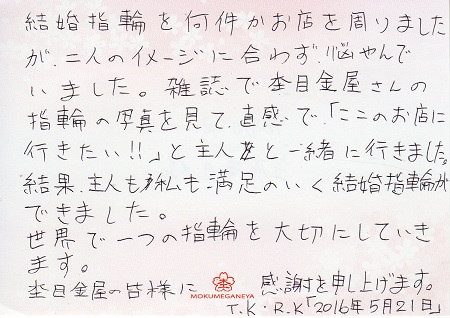 結婚指輪を何件かお店を周りました
が、二人のイメージに合わず、悩やんで
いました。雑誌で杢目金屋さんの
指輪の写真を見て、直感で、「ここのお店に
行きたい!!」と主人と一緒に行きました。
結果、主人も私も満足のいく結婚指輪が
できました。
世界で一つの指輪を大切にしていき
ます。
杢目金屋の皆様に 感謝を申し上げます。
MOKUMEGANEYA
T.K・R.K「2016年5月21日」